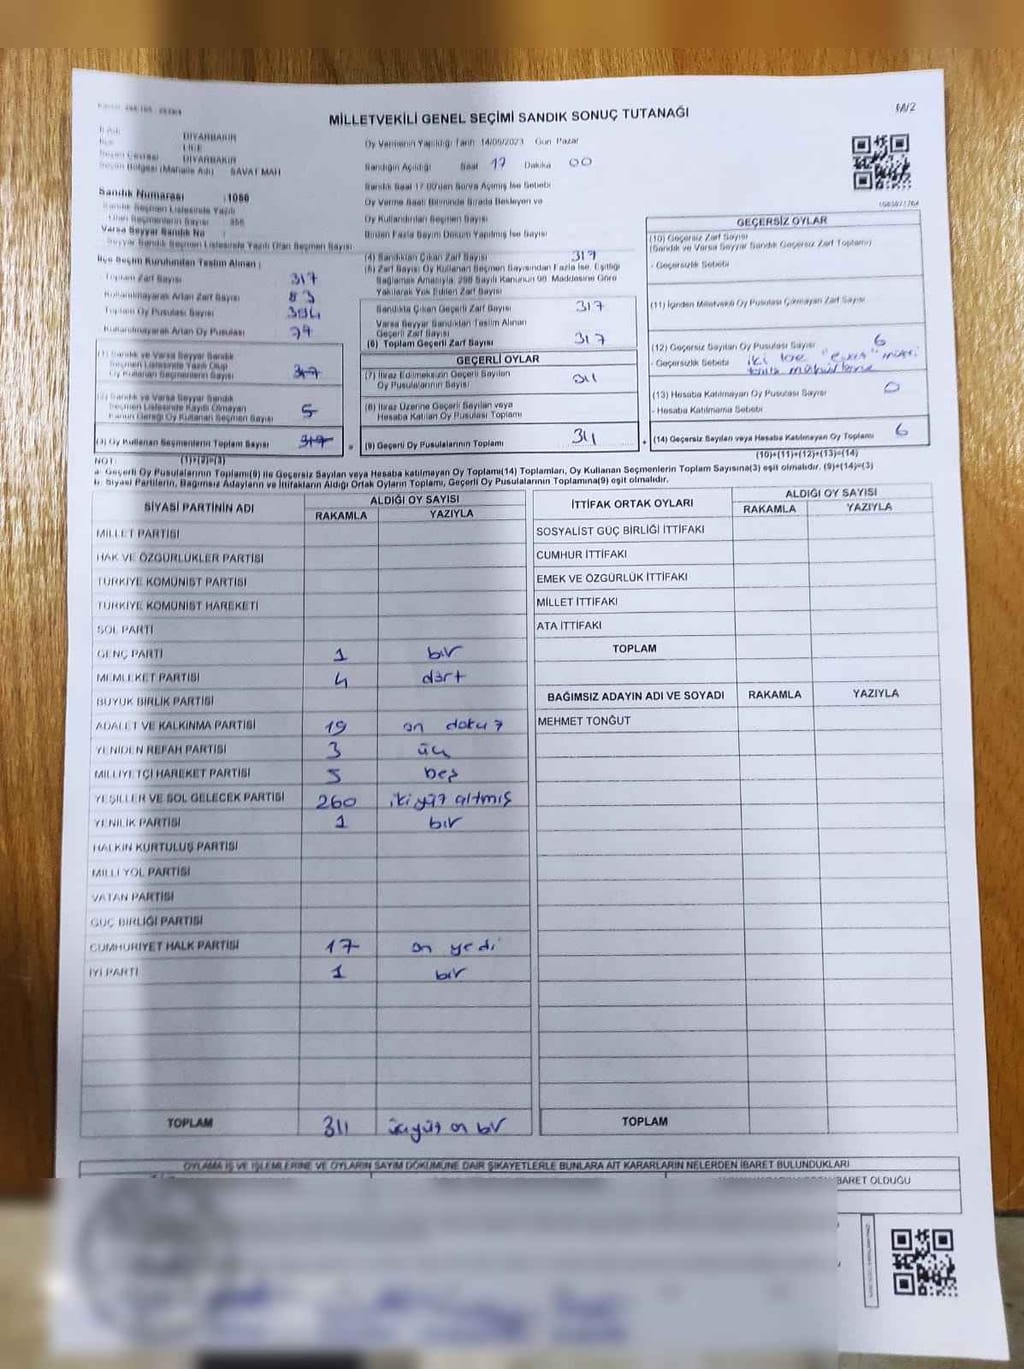 MİLLETVEKİLİ GENEL SEÇİMİ SANDIK SONUÇ TUTANAĞI
M/2
DİYARBAKIR
Oy Vermenin Yapıldığı Tarih 14/05/2023 Gün Pazar
LİCE
DİYARBAKIR
Sandığın Açıldığı Saat 17 Dakika 00
SAVAT MAH
Sandık Saat 17.00'den Sonra Açılmış İse Sebebi
Sandık Numarası :1086
Oy Verme Saati Bitiminde Sırada Bekleyen ve
Sandık Seçmen Listesinde Yazılı
Oy Kullandırılan Seçmen Sayısı
Olan Seçmenlerin Sayısı
Varsa Seyyar Sandık No
Birden Fazla Sayım Döküm Yapılmış İse Sayısı
Seyyar Sandık Seçmen Listesinde Yazılı Olan Seçmen Sayısı
İlçe Seçim Kurulundan Teslim Alınan :
Toplam Zarf Sayısı 317
Kullanılmayarak Artan Zarf Sayısı 83
Toplam Oy Pusulası Sayısı
Kullanılmayarak Artan Oy Pusulası 74
(1) Sandık ve Varsa Seyyar Sandık
Seçmen Listesinde Yazılı Olup
Oy Kullanan Seçmenlerin Sayısı
(2) Sandık ve Varsa Seyyar Sandık
Seçmen Listesinde Kayıtlı Olmayan
Kanun Gereği Oy Kullanan Seçmen Sayısı 5
(3) Oy Kullanan Seçmenlerin Toplam Sayısı 317
(1)+(2)=(3)
(4) Sandıktan Çıkan Zarf Sayısı 317
(5) Zarf Sayısı Oy Kullanan Seçmen Sayısından Fazla İse, Eşitliği
Sağlamak Amacıyla, 298 Sayılı Kanunun 98. Maddesine Göre
Yakılarak Yok Edilen Zarf Sayısı
Sandıkta Çıkan Geçerli Zarf Sayısı 317
Varsa Seyyar Sandıktan Teslim Alınan
Geçerli Zarf Sayısı
(6) Toplam Geçerli Zarf Sayısı 317
GEÇERLİ OYLAR
(7) İtiraz Edilmeksizin Geçerli Sayılan
Oy Pusulalarının Sayısı 311
(8) İtiraz Üzerine Geçerli Sayılan veya
Hesaba Katılan Oy Pusulası Toplamı
= (9) Geçerli Oy Pusulalarının Toplamı 311
GEÇERSİZ OYLAR
(10) Geçersiz Zarf Sayısı
(Sandık ve Varsa Seyyar Sandık Geçersiz Zarf Toplamı)
- Geçersizlik Sebebi
(11) İçinden Milletvekili Oy Pusulası Çıkmayan Zarf Sayısı
(12) Geçersiz Sayılan Oy Pusulası Sayısı 6
- Geçersizlik Sebebi iki kere "evet"
(13) Hesaba Katılmayan Oy Pusulası Sayısı 0
- Hesaba Katılmama Sebebi
+ (14) Geçersiz Sayılan veya Hesaba Katılmayan Oy Toplamı 6
(10)+(11)+(12)+(13)=(14)
NOT:
a- Geçerli Oy Pusulalarının Toplamı(9) ile Geçersiz Sayılan veya Hesaba katılmayan Oy Toplamı(14) Toplamları, Oy Kullanan Seçmenlerin Toplam Sayısına(3) eşit olmalıdır. (9)+(14)=(3)
b- Siyasi Partilerin, Bağımsız Adayların ve İttifakların Aldığı Ortak Oyların Toplamı, Geçerli Oy Pusulalarının Toplamına(9) eşit olmalıdır.
SİYASİ PARTİNİN ADI ALDIĞI OY SAYISI
RAKAMLA YAZIYLA
MİLLET PARTİSİ
HAK VE ÖZGÜRLÜKLER PARTİSİ
TÜRKİYE KOMÜNİST PARTİSİ
TÜRKİYE KOMÜNİST HAREKETİ
SOL PARTİ
GENÇ PARTİ 1 bir
MEMLEKET PARTİSİ 4 dört
BÜYÜK BİRLİK PARTİSİ
ADALET VE KALKINMA PARTİSİ 19 on dokuz
YENİDEN REFAH PARTİSİ 3 üç
MİLLİYETÇİ HAREKET PARTİSİ 5 beş
YEŞİLLER VE SOL GELECEK PARTİSİ 260 iki yüz altmış
YENİLİK PARTİSİ 1 bir
HALKIN KURTULUŞ PARTİSİ
MİLLİ YOL PARTİSİ
VATAN PARTİSİ
GÜÇ BİRLİĞİ PARTİSİ
CUMHURİYET HALK PARTİSİ 17 on yedi
İYİ PARTİ 1 bir
TOPLAM 311 üçyüz on bir
İTTİFAK ORTAK OYLARI ALDIĞI OY SAYISI
RAKAMLA YAZIYLA
SOSYALİST GÜÇ BİRLİĞİ İTTİFAKI
CUMHUR İTTİFAKI
EMEK VE ÖZGÜRLÜK İTTİFAKI
MİLLET İTTİFAKI
ATA İTTİFAKI
TOPLAM
BAĞIMSIZ ADAYIN ADI VE SOYADI RAKAMLA YAZIYLA
MEHMET TONĞUT
TOPLAM
OYLAMA İŞ VE İŞLEMLERİNE VE OYLARIN SAYIM DÖKÜMÜNE DAİR ŞİKAYETLERLE BUNLARA AİT KARARLARIN NELERDEN İBARET BULUNDUKLARI
BARET OLDUĞU